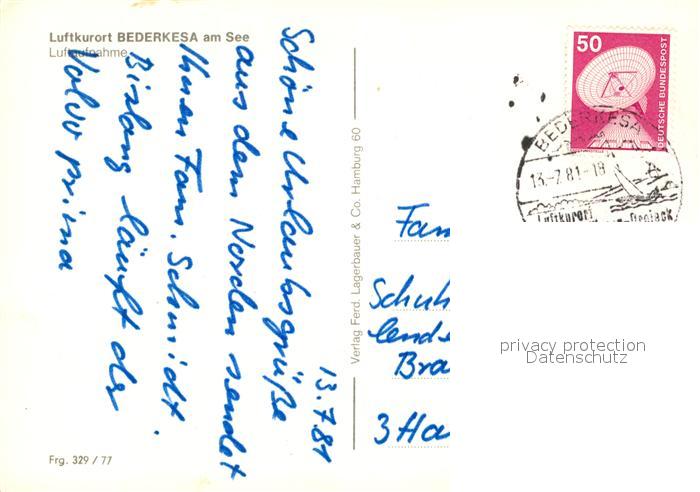 Luftkurort BEDERKESA am See
Luftaufnahme
13.7.81
Schöne Urlaubsgrüße
aus dem Norden sendet
Ihnen Fam. Schmidt.
Bislang läuft der
Volvo prima
Frg. 329 / 77
Verlag Ferd. Lagerbauer & Co. Hamburg 60
50
DEUTSCHE BUNDESPOST
BEDERKESA
13.-7.81-18
Luftkurort
Fam
Schuh
lende
Bra
3 Ha
privacy protection
Datenschutz